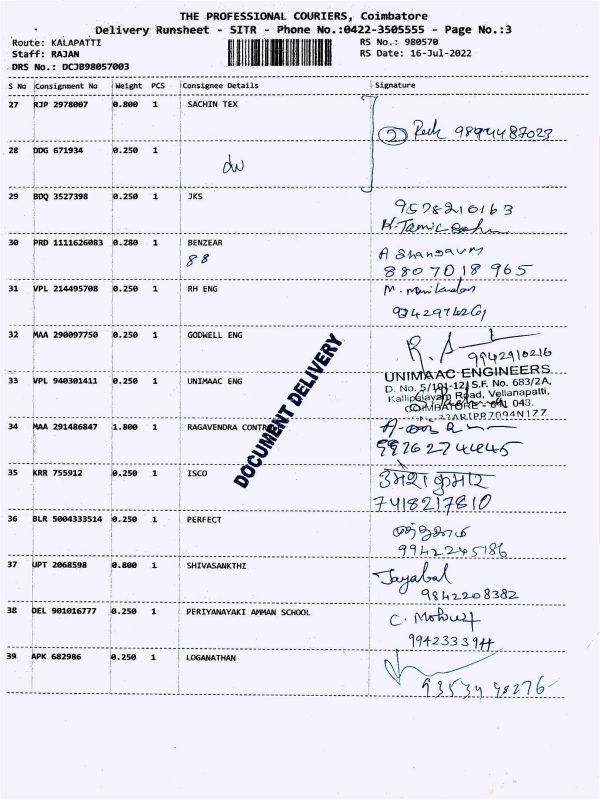 THE PROFESSIONAL COURIERS, Coimbatore
Delivery Runsheet - SITR - Phone No.:0422-3505555 - Page No.:3
Route: KALAPATTI RS No.: 980570
Staff: RAJAN RS Date: 16-Jul-2022
DRS No.: DCJB98057003
S No Consignment No Weight PCS Consignee Details Signature
27 RJP 2978007 0.800 1 SACHIN TEX
2 9894487023
28 DDG 671934 0.250 1
29 BDQ 3527398 0.250 1 JKS
9578210163
30 PRD 1111626083 0.280 1 BENZEAR
88
8807018965
31 VPL 214495708 0.250 1 RH ENG
M. Manikandan
32 MAA 290097750 0.250 1 GODWELL ENG
9942910216
33 VPL 940301411 0.250 1 UNIMAAC ENG
UNIMAAC ENGINEERS
D. No. 5/101-12, S.F. No. 683/2A,
Kallipalayam Road, Vellanapatti,
COIMBATORE - 641 043.
DOCUMENT DELIVERY
34 MAA 291486847 1.800 1 RAGAVENDRA
9926274445
35 KRR 755912 0.250 1 ISCO
उमेश कुमार
7418217810
36 BLR 5004333514 0.250 1 PERFECT
9942245186
37 UPT 2068598 0.800 1 SHIVASANKTHI
Jayabal
9842208382
38 DEL 901016777 0.250 1 PERIYANAYAKI AMMAN SCHOOL
39 APK 682986 0.250 1 LOGANATHAN